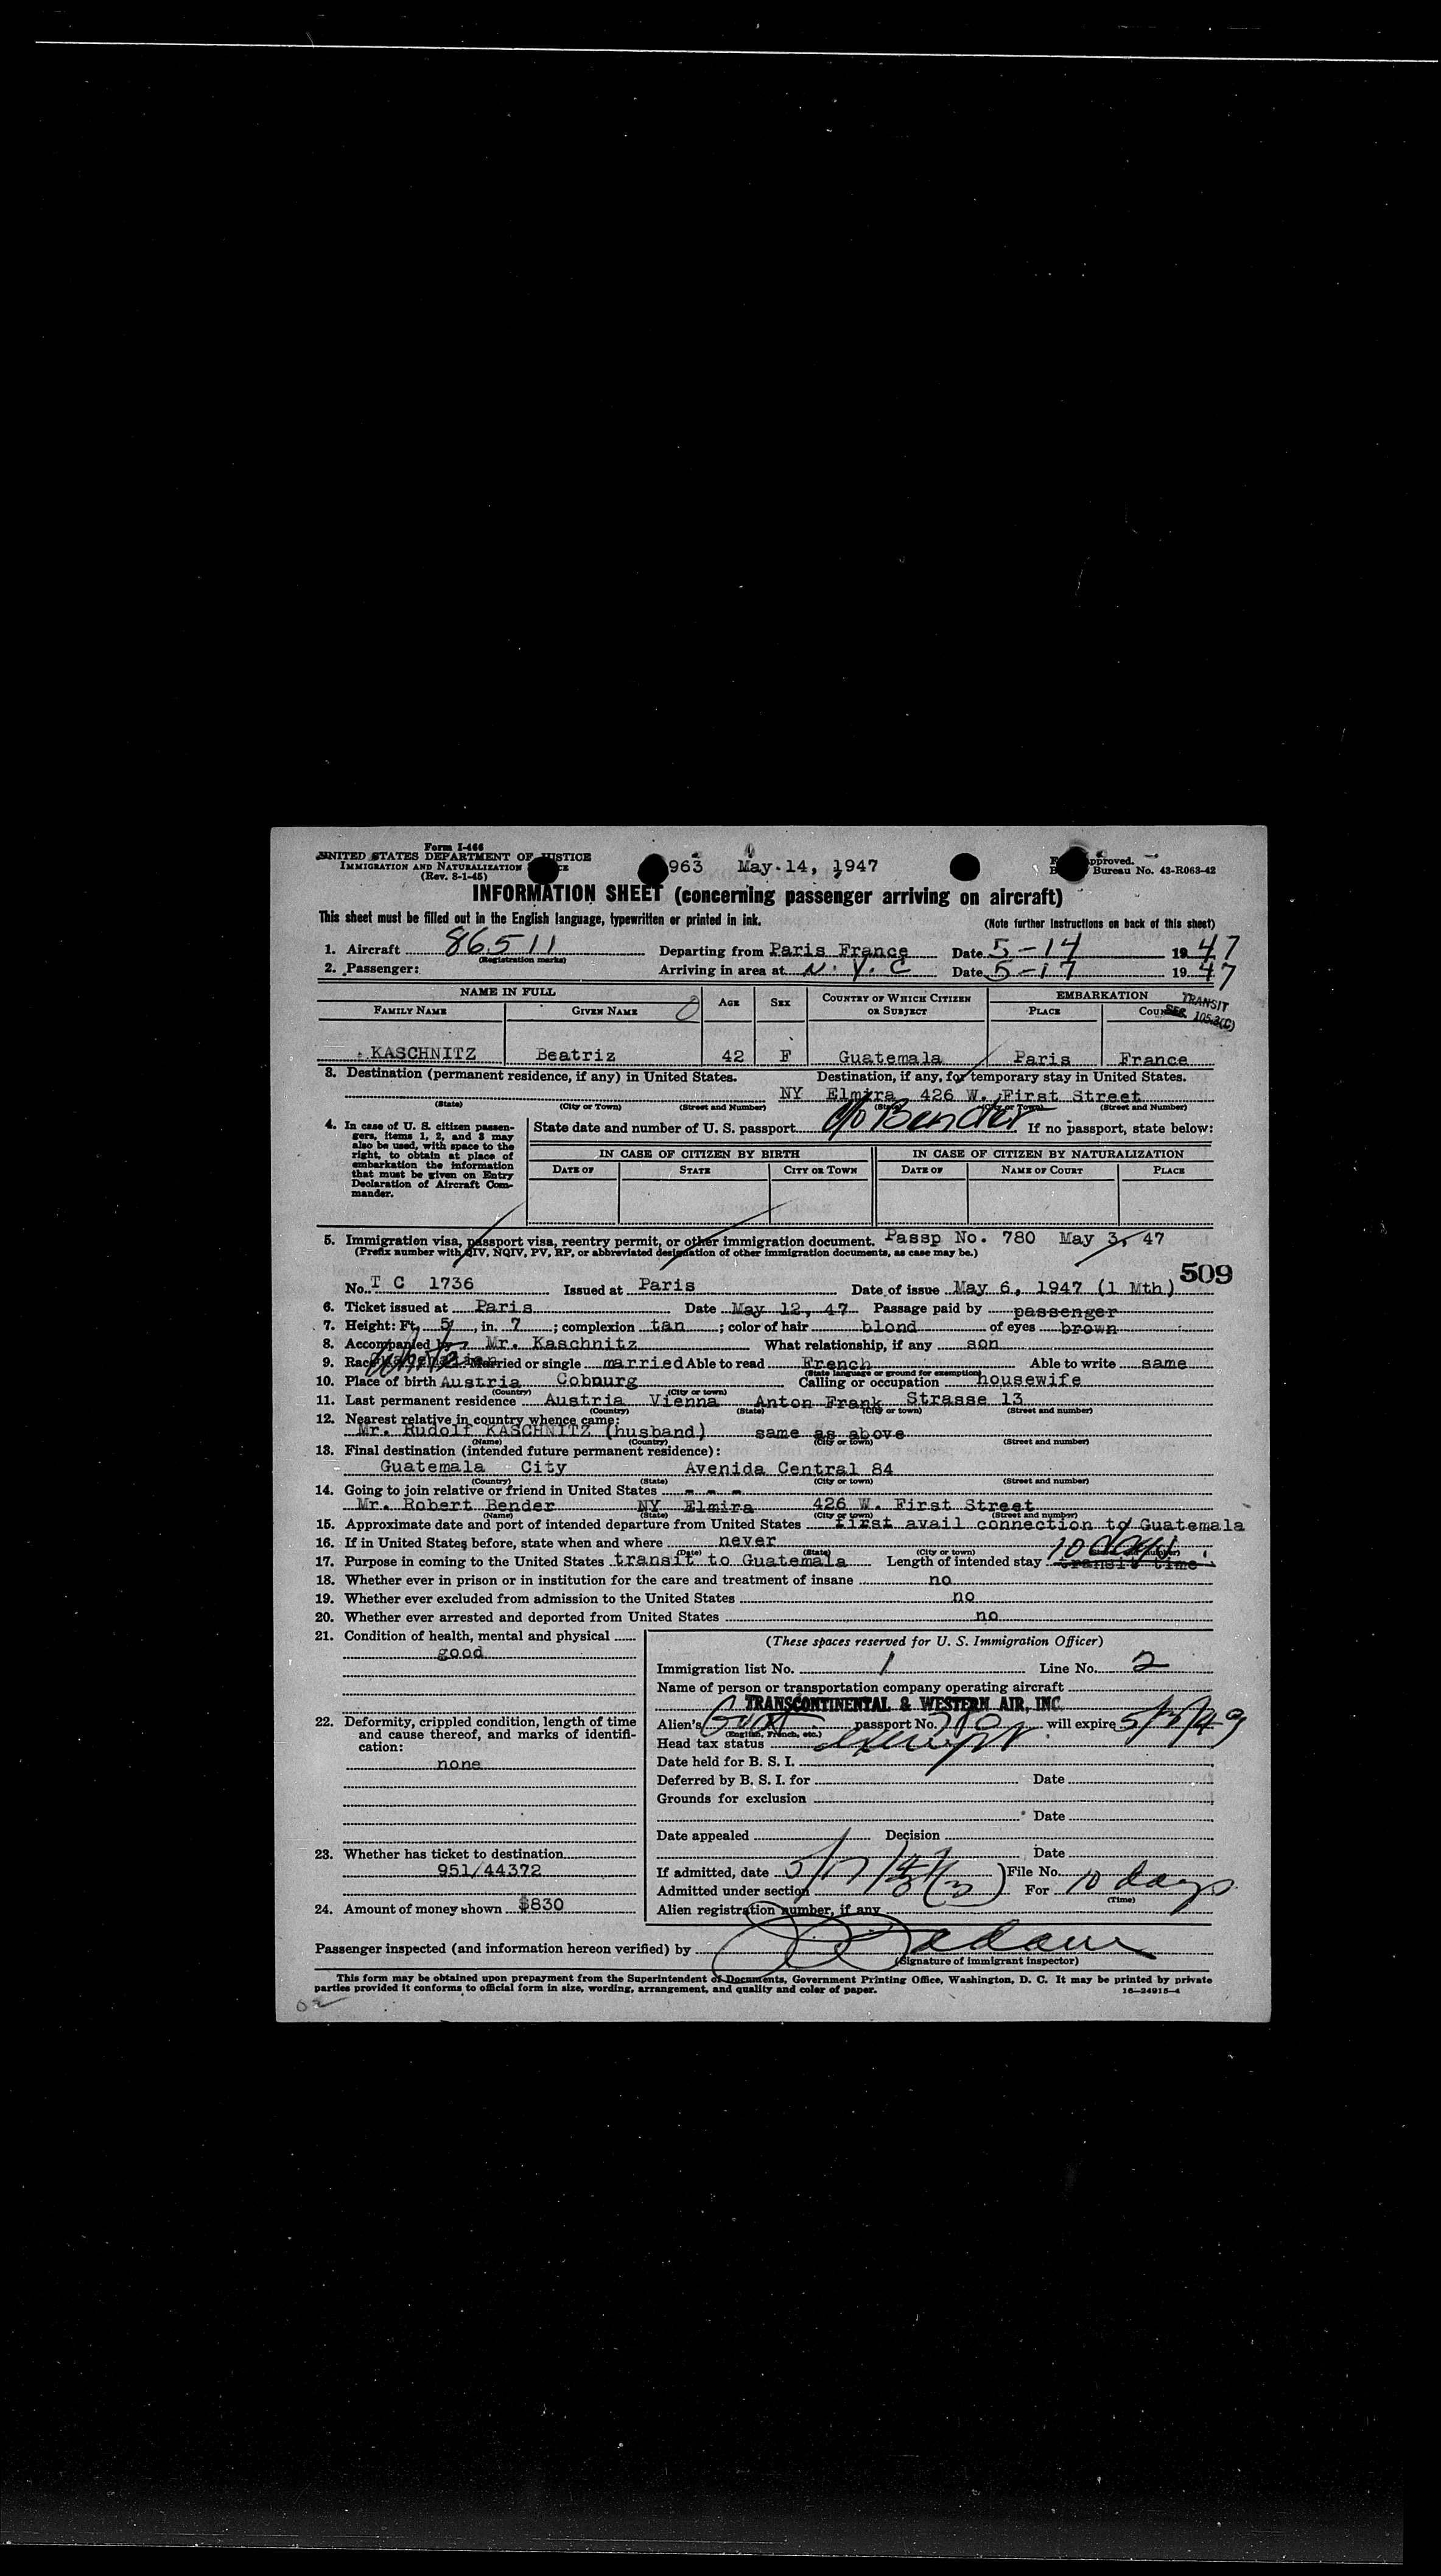 Form I-466
UNITED STATES DEPARTMENT OF JUSTICE
IMMIGRATION AND NATURALIZATION
(Rev. 3-1-45)
963 May 14, 1947
pproved.
Bureau No. 43-R063-42
INFORMATION SHEET (concerning passenger arriving on aircraft)
This sheet must be filled out in the English language, typewritten or printed in ink.
(Note further instructions on back of this sheet)
1. Aircraft 86511 Departing from Paris France Date 5-14 1947
(Registration marks)
2. Passenger: Arriving in area at N.Y.C Date 5-17 1947
NAME IN FULL AGE SEX COUNTRY OF WHICH CITIZEN OR SUBJECT EMBARKATION
FAMILY NAME GIVEN NAME PLACE
TRANSIT
SEC. 105.3(C)
KASCHNITZ Beatriz 42 F Guatemala Paris France
3. Destination (permanent residence, if any) in United States. Destination, if any, for temporary stay in United States.
NY Elmira 426 W. First Street
(State) (City or Town) (Street and Number) (State) (City or Town) (Street and Number)
c/o Bender
4. In case of U. S. citizen passengers, items 1, 2, and 3 may also be used, with space to the right, to obtain at place of embarkation the information that must be given on Entry Declaration of Aircraft Commander.
State date and number of U. S. passport If no passport, state below:
IN CASE OF CITIZEN BY BIRTH IN CASE OF CITIZEN BY NATURALIZATION
DATE OF STATE CITY OR TOWN DATE OF NAME OF COURT PLACE
5. Immigration visa, passport visa, reentry permit, or other immigration document. Passp No. 780 May 3, 47
(Prefix number with QIV, NQIV, PV, RP, or abbreviated designation of other immigration documents, as case may be.)
509
No. T C 1736 Issued at Paris Date of issue May 6, 1947 (1 Mth)
6. Ticket issued at Paris Date May 12, 47 Passage paid by passenger
7. Height: Ft. 5 in. 7; complexion tan; color of hair blond of eyes brown
8. Accompanied by Mr. Kaschnitz What relationship, if any son
9. Race Married or single married Able to read French Able to write same
(State language or ground for exemption)
10. Place of birth Austria Cobnurg Calling or occupation housewife
(Country) (City or town)
11. Last permanent residence Austria Vienna Anton Frank Strasse 13
(Country) (State) (City or town) (Street and number)
12. Nearest relative in country whence came:
Mr. Rudolf KASCHNITZ (husband) same as above
(Name) (Country) (City or town) (Street and number)
13. Final destination (intended future permanent residence):
Guatemala City Avenida Central 84
(Country) (State) (City or town) (Street and number)
14. Going to join relative or friend in United States - - -
Mr. Robert Bender NY Elmira 426 W. First Street
(Name) (State) (City or town) (Street and number)
15. Approximate date and port of intended departure from United States first avail connection to Guatemala
16. If in United States before, state when and where never
(Date) (State) (City or town)
17. Purpose in coming to the United States transit to Guatemala Length of intended stay 10 days transit time
18. Whether ever in prison or in institution for the care and treatment of insane no
19. Whether ever excluded from admission to the United States no
20. Whether ever arrested and deported from United States no
21. Condition of health, mental and physical
good
22. Deformity, crippled condition, length of time and cause thereof, and marks of identification:
none
23. Whether has ticket to destination
951/44372
24. Amount of money shown $830
(These spaces reserved for U. S. Immigration Officer)
Immigration list No. 1 Line No. 2
Name of person or transportation company operating aircraft
TRANSCONTINENTAL & WESTERN AIR, INC
Alien's Guat passport No. 780 will expire 5/3/49
(English, French, etc.)
Head tax status exempt
Date held for B. S. I.
Deferred by B. S. I. for Date
Grounds for exclusion
Date
Date appealed Decision
Date
If admitted, date 5/17/47 File No.
Admitted under section 3(3) For 10 days
(Time)
Alien registration number, if any
Passenger inspected (and information hereon verified) by
(Signature of immigrant inspector)
This form may be obtained upon prepayment from the Superintendent of Documents, Government Printing Office, Washington, D. C. It may be printed by private
parties provided it conforms to official form in size, wording, arrangement, and quality and color of paper.
16—24915-4